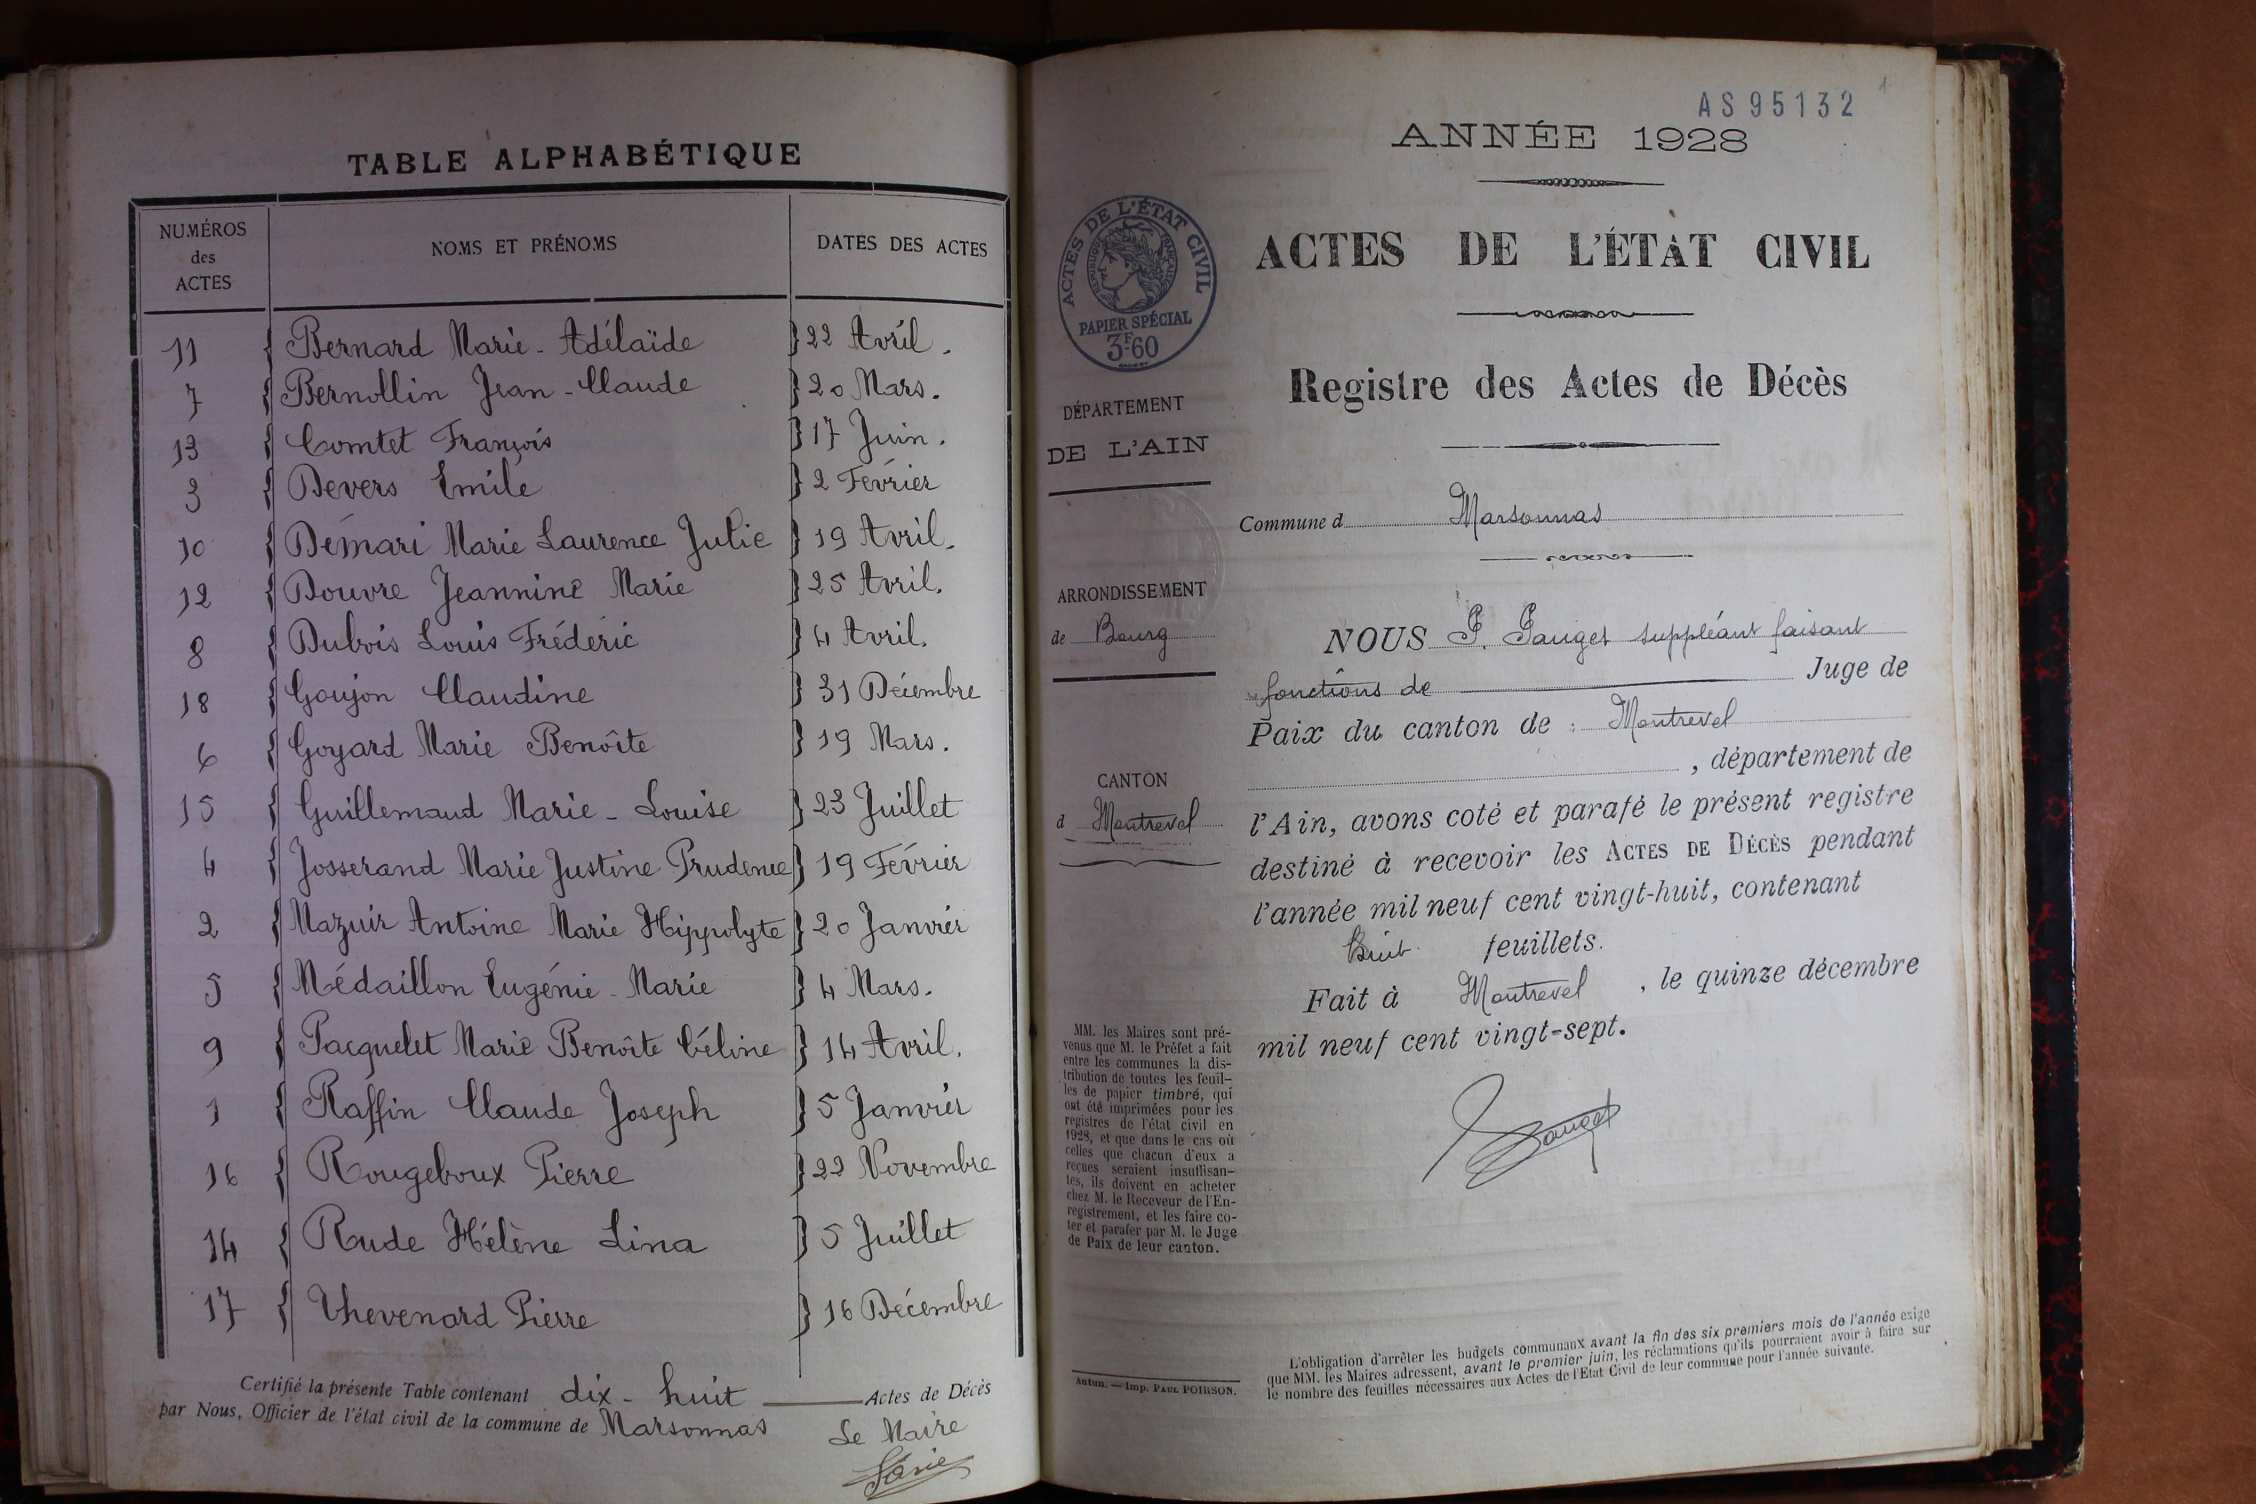 TABLE ALPHABÉTIQUE
NUMÉROS des ACTES
NOMS ET PRÉNOMS
DATES DES ACTES
11 Bernard Marie - Adélaïde 22 Avril.
7 Bernollin Jean - Claude 20 Mars.
13 Comtet François 17 Juin.
3 Devers Emile 2 Février
10 Démari Marie Laurence Julie 19 Avril.
12 Douvre Jeannine Marie 25 Avril.
8 Dubois Louis Fréderic 4 Avril.
18 Goujon Claudine 31 Décembre
6 Goyard Marie Benoîte 19 Mars.
15 Guillemaud Marie - Louise 23 Juillet
4 Josserand Marie Justine Prudence 19 Février
2 Mazuir Antoine Marie Hippolyte 20 Janvier
5 Médaillon Eugénie - Marie 4 Mars.
9 Pacquelet Marie Benoîte Céline 14 Avril.
1 Raffin Claude Joseph 5 Janvier
16 Rougeboux Pierre 22 Novembre
14 Rude Hélène Lina 5 Juillet
17 Thevenard Pierre 16 Décembre
Certifié la présente Table contenant dix - huit Actes de Décès
par Nous, Officier de l'état civil de la commune de Marsonnas
Le Maire
AS95132
1
ANNÉE 1928
ACTES DE L'ÉTAT CIVIL
RÉPUBLIQUE FRANÇAISE
PAPIER SPÉCIAL
3F60
DÉPARTEMENT
DE L'AIN
ARRONDISSEMENT
de Bourg
CANTON
d Montrevel
MM. les Maires sont pré-
venus que M. le Préfet a fait
entre les communes la dis-
tribution de toutes les feuil-
les de papier timbré, qui
ont été imprimées pour les
registres de l'état civil en
1928, et que dans le cas où
celles que chacun d'eux a
reçues seraient insuffisan-
tes, ils doivent en acheter
chez M. le Receveur de l'En-
registrement, et les faire co-
ter et parafer par M. le Juge
de Paix de leur canton.
Autun. — Imp. PAUL POIRSON.
ACTES DE L'ÉTAT CIVIL
Registre des Actes de Décès
Commune d Marsonnas
NOUS P. Pauget suppléant faisant
fonctions de Juge de
Paix du canton de : Montrevel
, département de
l'Ain, avons coté et parafé le présent registre
destiné à recevoir les ACTES DE DÉCÈS pendant
l'année mil neuf cent vingt-huit, contenant
huit feuillets.
Fait à Montrevel, le quinze décembre
mil neuf cent vingt-sept.
Pauget
L'obligation d'arrêter les budgets communaux avant la fin des six premiers mois de l'année exige
que MM. les Maires adressent, avant le premier juin, les réclamations qu'ils pourraient avoir à faire sur
le nombre des feuilles nécessaires aux Actes de l'Etat Civil de leur commune pour l'année suivante.